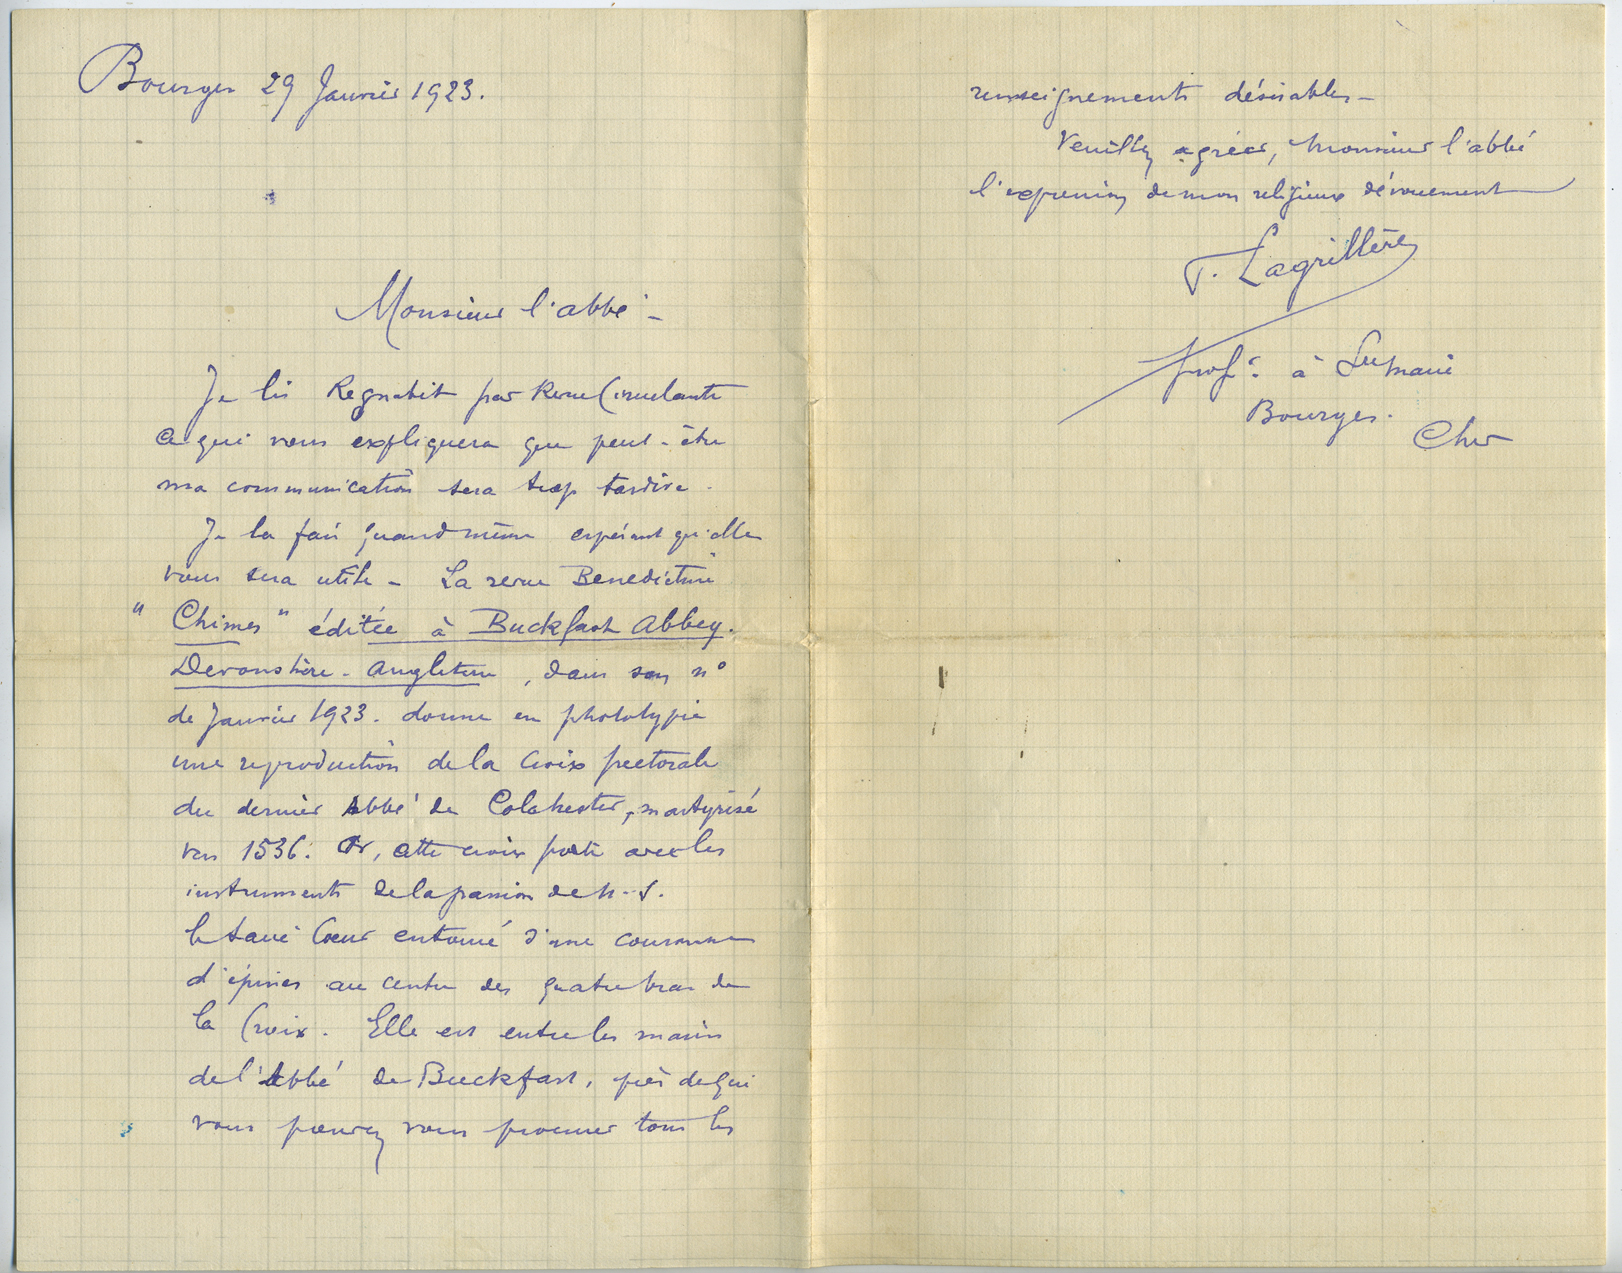 Bourges 29 Janvier 1923.
Monsieur l'abbé -
Je lis Regnabit par Revue Circulante
Ce qui vous expliquera que peut-être
ma communication sera trop tardive.
Je la fais quand même espérant qu'elle
vous sera utile - La revue Benedictine
" Chimes " éditée à Buckfast Abbey.
Devonshire - Angleterre, dans son n°
de Janvier 1923. donne en phototypie
une reproduction de la Croix pectorale
du dernier Abbé de Colchester, martyrisé
vers 1536. Or, cette croix porte avec les
instruments de la passion de N.-S.
le Sacré Cœur entouré d'une couronne
d'épines au centre des quatre bras de
la Croix. Elle est entre les mains
de l'Abbé de Buckfast, près de qui
vous pourrez vous procurer tous les
renseignements désirables -
Veuillez agréer, Monsieur l'abbé
l'expression de mon religieux dévouement
Lagrillère
prof. à Ste Marie
Bourges.
Cher